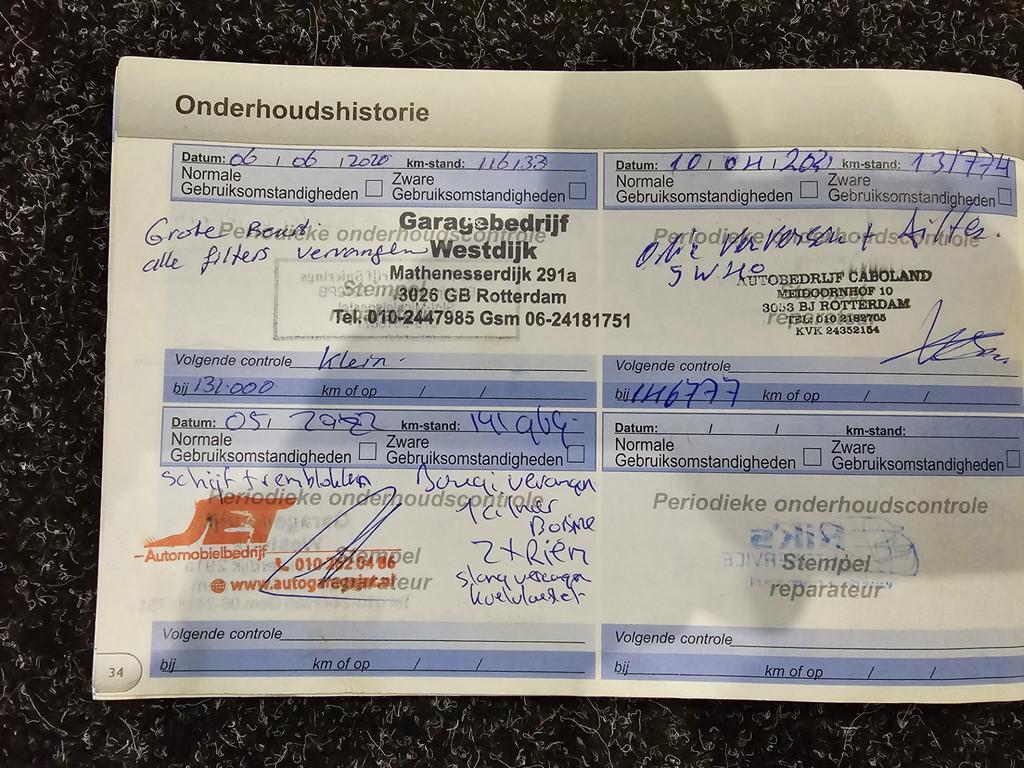 Onderhoudshistorie
Datum: 06 / 06 / 2020 km-stand: 116133
Normale Gebruiksomstandigheden Zware Gebruiksomstandigheden
Grote Beurt
alle filters vervangen
Periodieke onderhoudscontrole
Garagebedrijf
Westdijk
Mathenesserdijk 291a
3026 GB Rotterdam
Tel. 010-2447985 Gsm 06-24181751
Stempel
Volgende controle Klein
bij 132.000 km of op / /
Datum: 10 / 04 / 2021 km-stand: 131774
Normale Gebruiksomstandigheden Zware Gebruiksomstandigheden
Olie verversen + filter.
5W40
Periodieke onderhoudscontrole
AUTOBEDRIJF CABOLAND
MEIDOORNHOF 10
3053 BJ ROTTERDAM
TEL: 010 2182705
KVK 24352154
Volgende controle
bij 146777 km of op / /
Datum: 05 / km-stand: 141969
Normale Gebruiksomstandigheden Zware Gebruiksomstandigheden
Schijf + remblokken
Periodieke onderhoudscontrole
Bougi vervangen
2x Riem
slang vervangen
koelvloeistof
JET
Automobielbedrijf
Stempel
reparateur
Volgende controle
bij km of op / /
Datum: / / km-stand:
Normale Gebruiksomstandigheden Zware Gebruiksomstandigheden
Periodieke onderhoudscontrole
Stempel
reparateur
Volgende controle
bij km of op / /
34